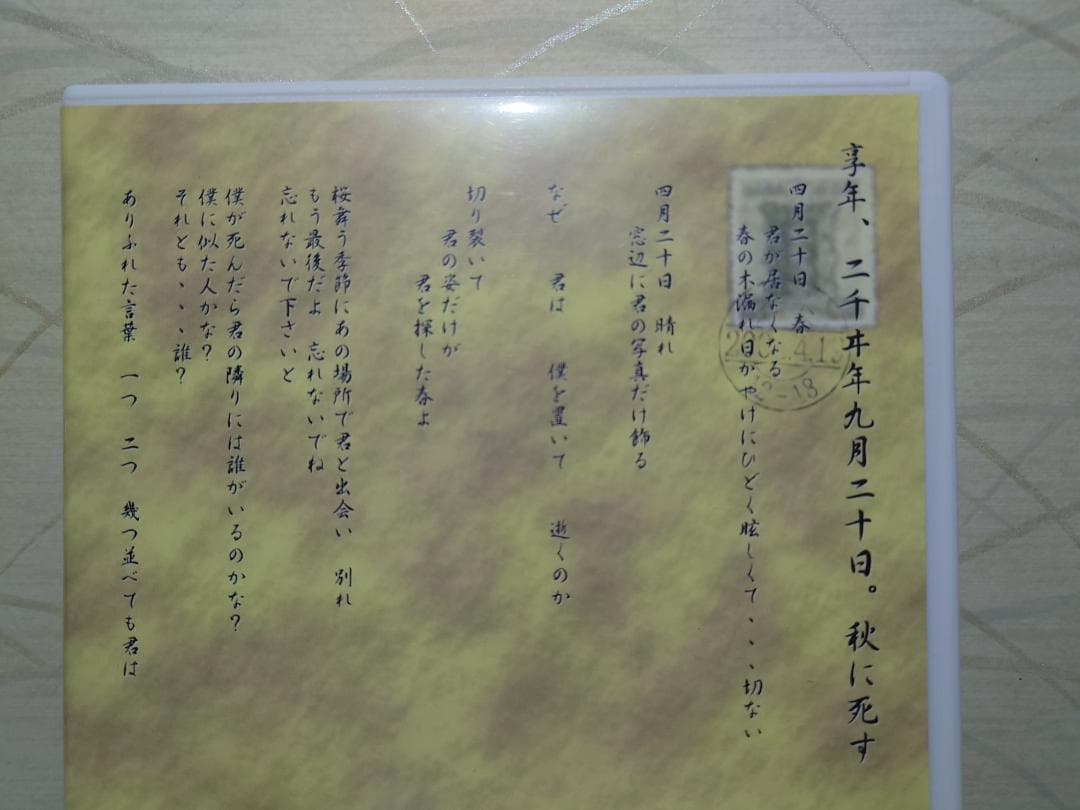 享年、二千ヰ年九月二十日。秋に死す
四月二十日　春
君が居なくなる
春の木漏れ日がやけにひどく眩しくて、、、切ない
四月二十日　晴れ
窓辺に君の写真だけ飾る
なぜ　君は　僕を置いて　逝くのか
切り裂いて
君の姿だけが
君を探した春よ
桜舞う季節にあの場所で君と出会い　別れ
もう最後だよ　忘れないでね
忘れないで下さいと
僕が死んだら君の隣りには誰がいるのかな？
僕に似た人かな？
それとも、、、誰？
ありふれた言葉　一つ　二つ　幾つ並べても君は